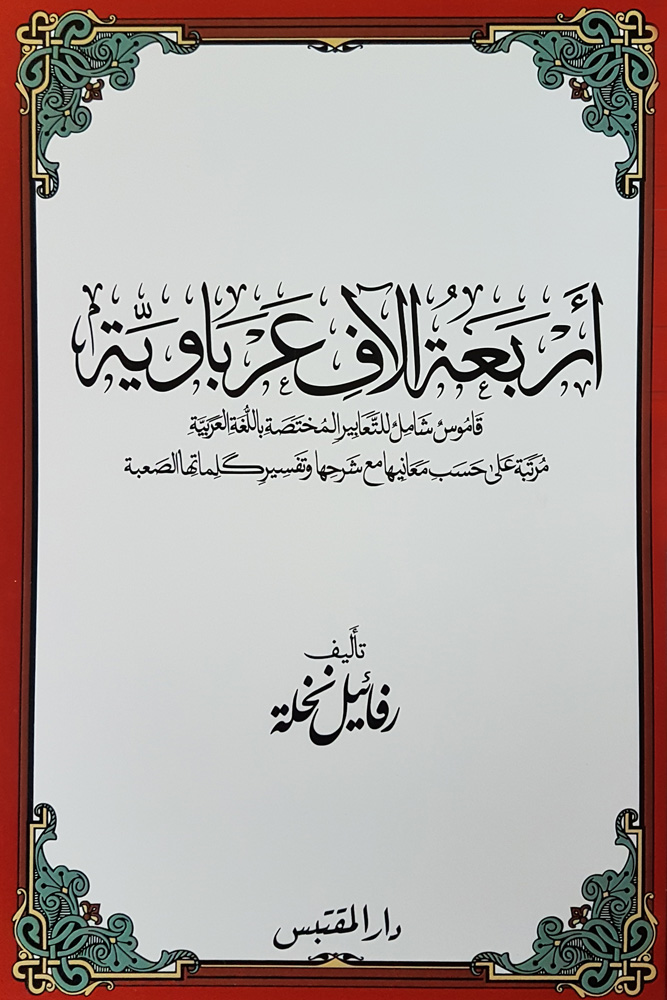 أَرْبَعَةُ الآفِ عَرَبَاوِيَّة
قَامُوسٌ شَامِلٌ للتَّعَابِيرِ المُختَصَّة بِاللُّغَةِ العَرَبِيَّةِ
مُرَتَّبَة عَلىٰ حَسَبِ مَعَانِيها مع شَرحِها وتَفسِيرِ كَلِماتِها الصَعبة
تأليف
رفائيل نخلة
دار المقتبس